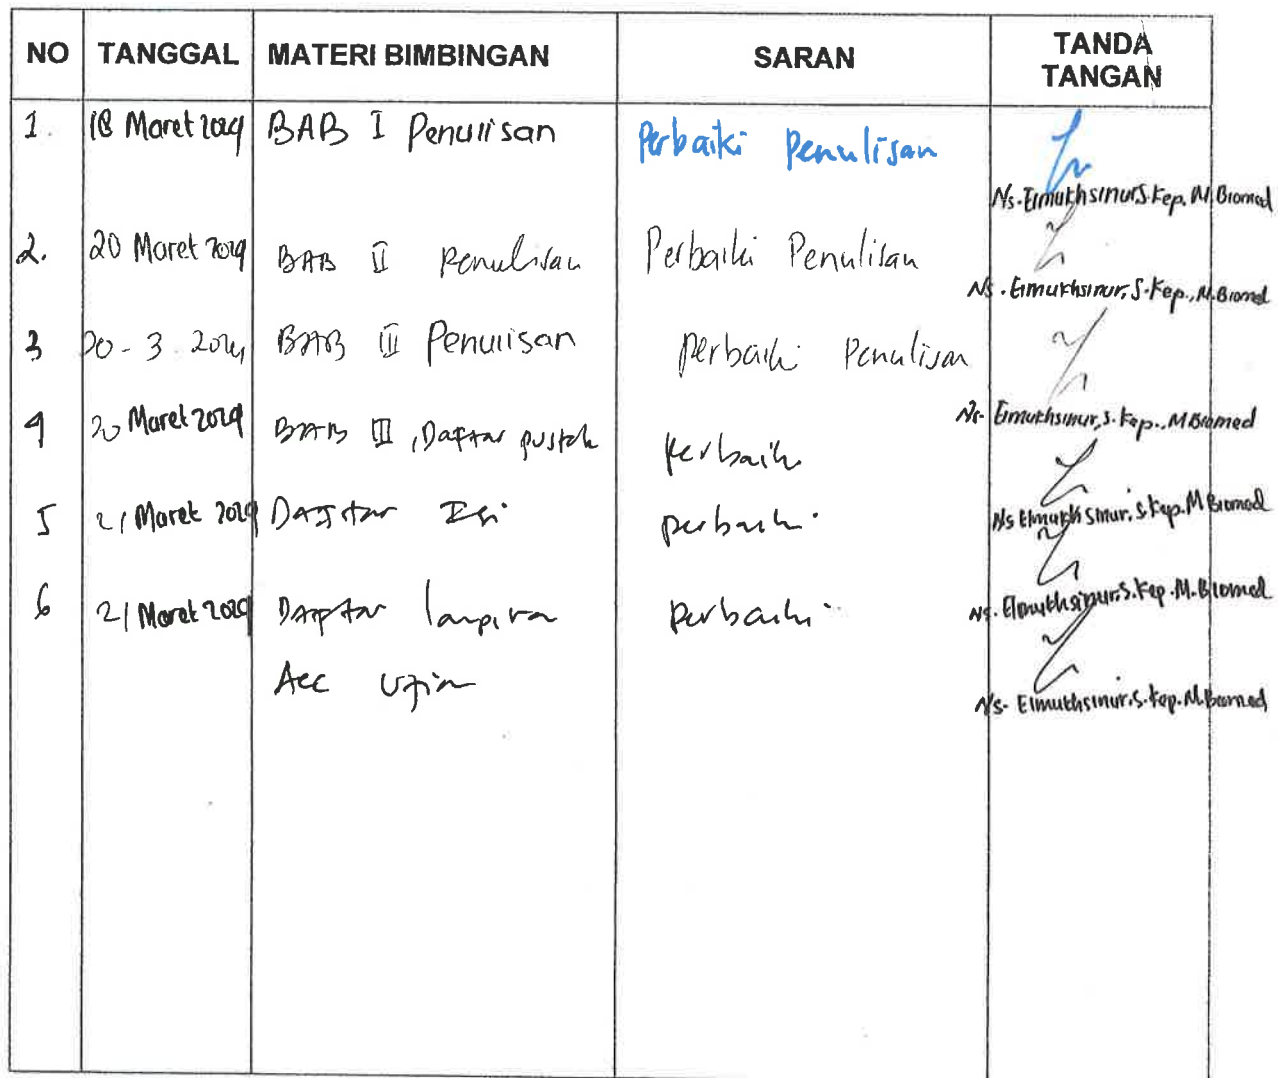 NO TANGGAL MATERI BIMBINGAN SARAN TANDA TANGAN
1. 18 Maret 2024 BAB I Penulisan Perbaiki Penulisan
Ns. Elmukhsinur, S.Kep, M.Biomed
2. 20 Maret 2024 BAB II Penulisan Perbaiki Penulisan
Ns. Elmukhsinur, S.Kep., M.Biomed
3 20-3-2024 BAB III Penulisan Perbaiki Penulisan
Ns. Elmukhsinur, S.Kep., M Biomed
4 20 Maret 2024 BAB III, Daftar pustak Perbaiki
Ns Elmukhsinur, S.Kep. M Biomed
5 21 Maret 2024 Daftar Isi perbaiki
Ns. Elmukhsinur, S.Kep. M.Biomed
6 21 Maret 2024 Daftar lampiran perbaiki
Acc Ujian
Ns. Elmukhsinur, S.Kep. M.Biomed